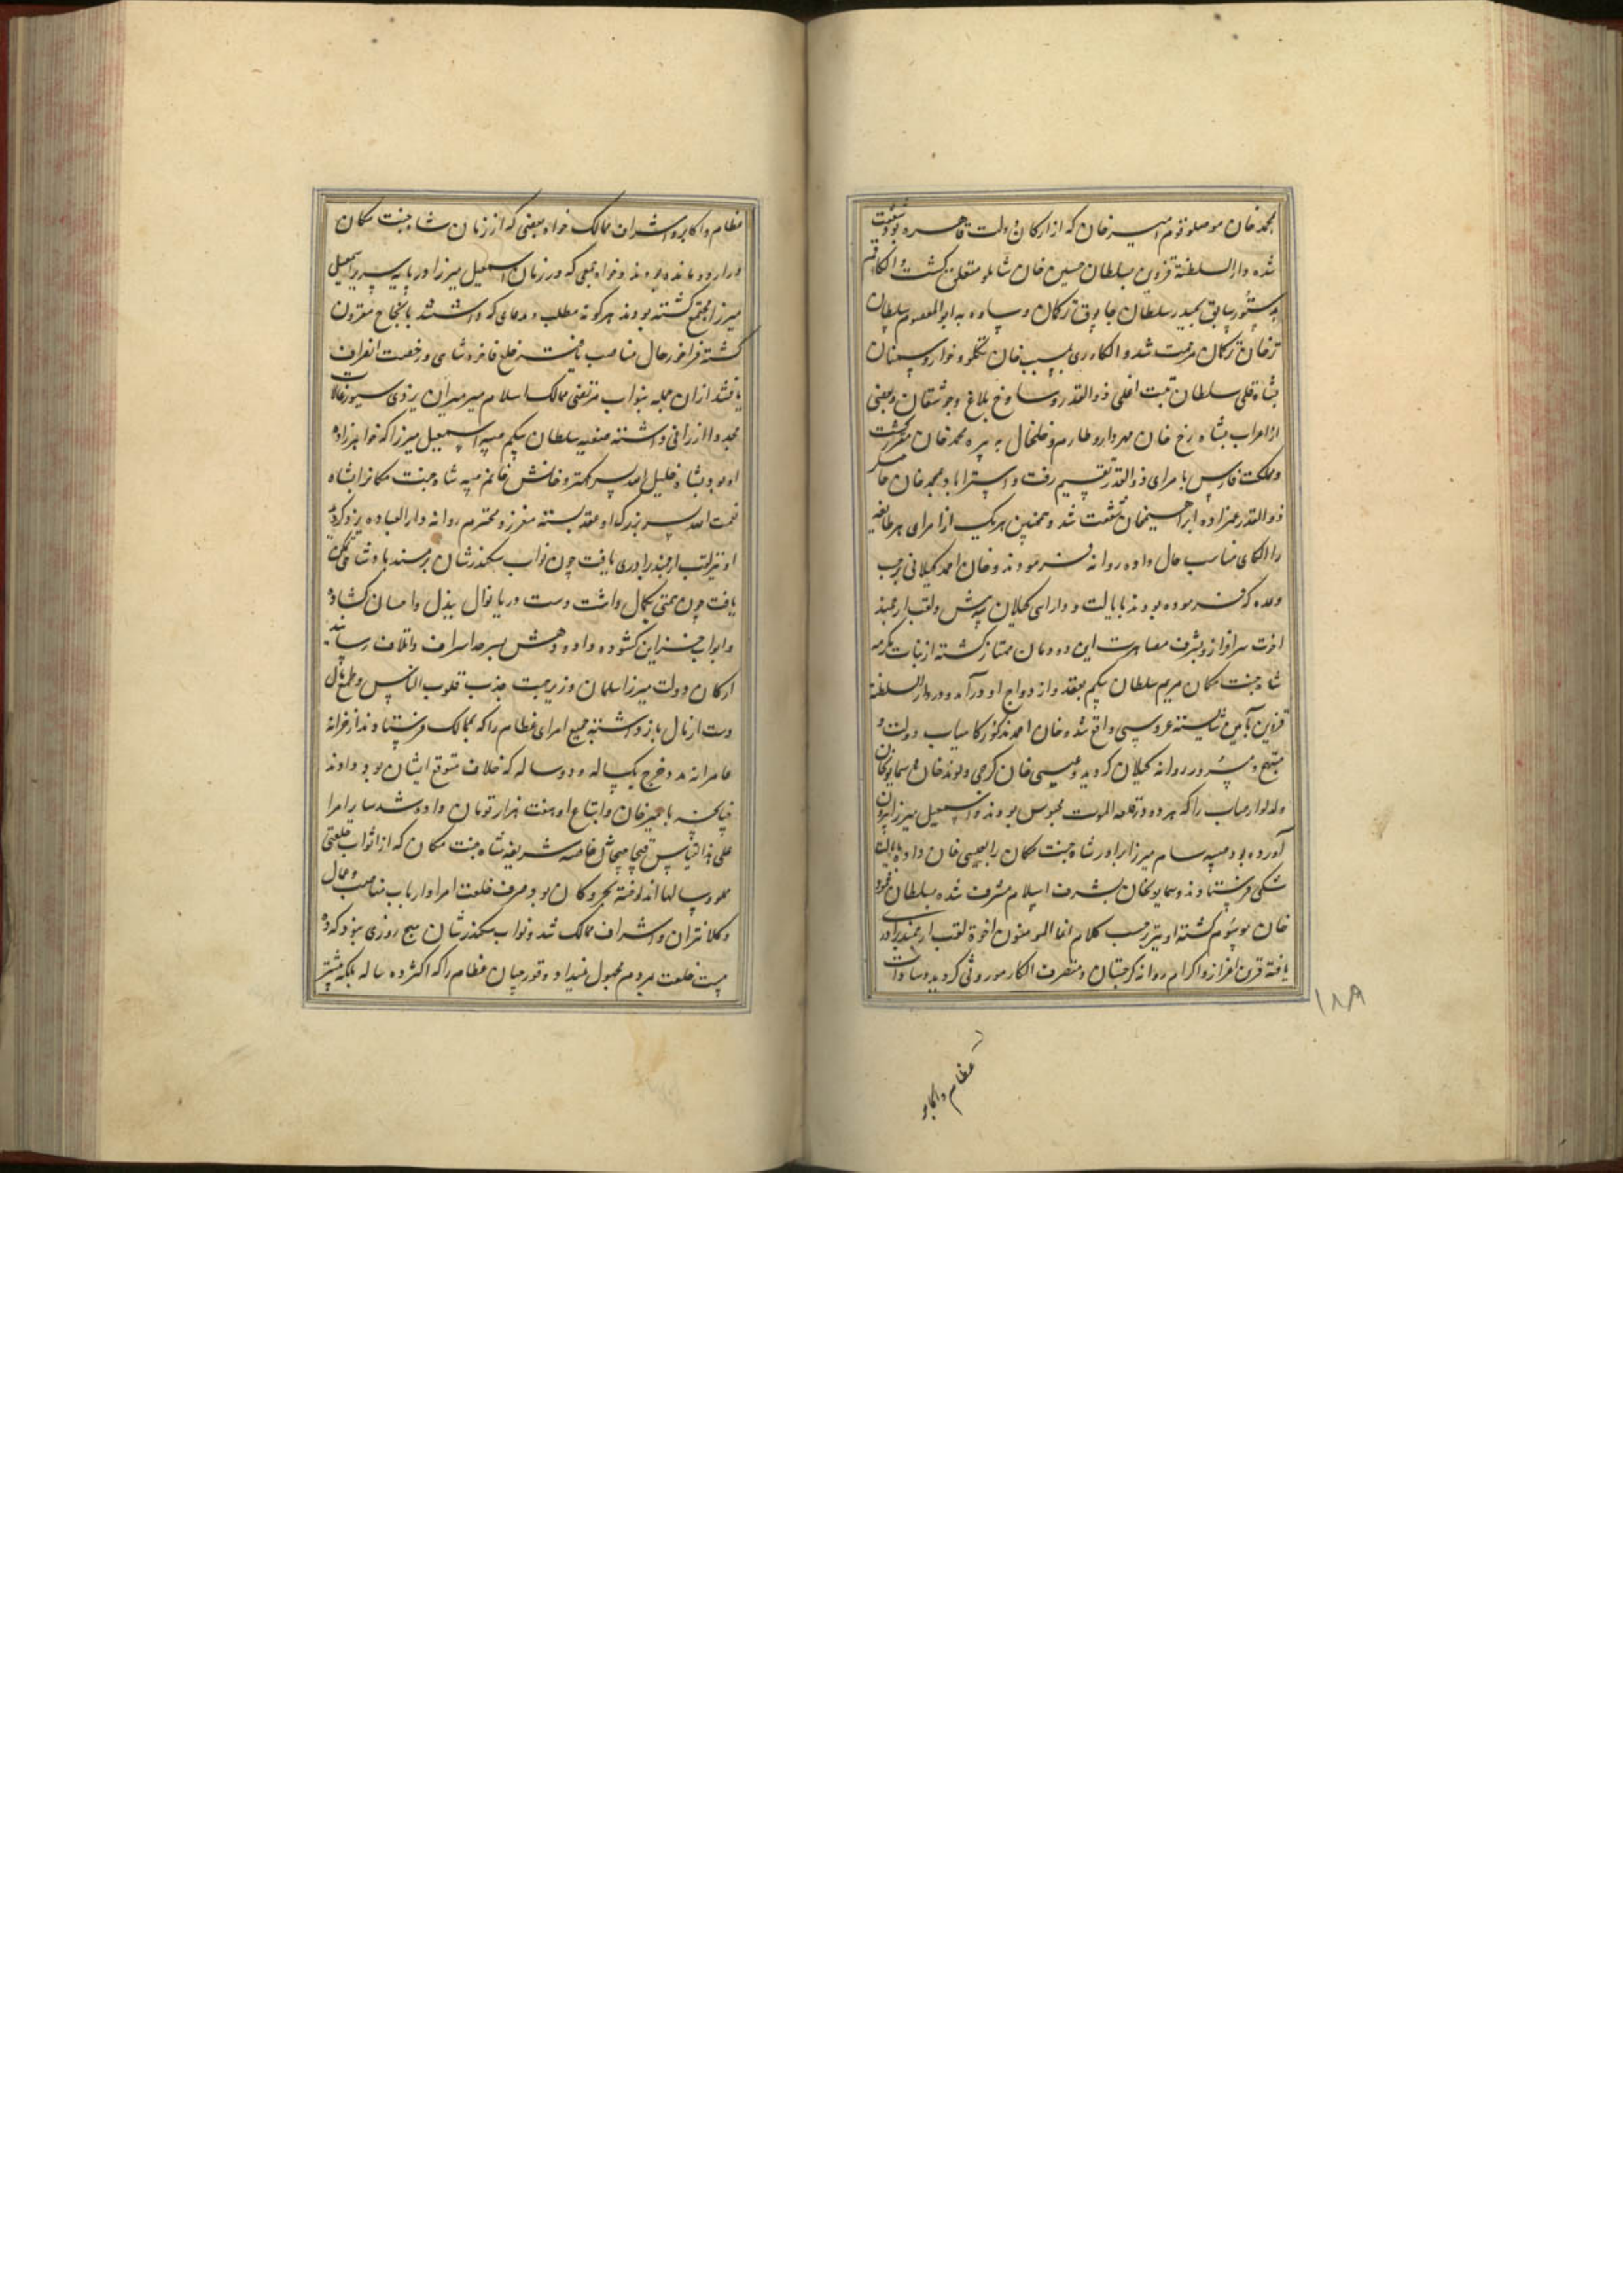 محمد خان موصلو قوم امیر خان که از ارکان دولت قاهره بود شفقت
شده دار السلطنة قزوین بسلطان حسین خان شاملو متعلق گشت و الکاء قم
بدستور سابق بحیدر سلطان چابوق ترکمان و ساوه به ابو المعصوم سلطان
ترخان ترکمان مرحمت شد و الکاء ری بمسیب خان تکلو و خوار و سمنان
بشاه قلی سلطان تبت اغلی ذو القدر و ساوخ بلاغ و جوشقان و بعضی
از اعراب بشاه رخ خان مهردار و طارم و خلخال به پیره محمد خان مقرر گشت
و مملکت فارس بامرای ذو القدر تقسیم رفت و استراباد بمحمد خان
ذو القدر عمزاده ابراهیمخان شفقت شد و همچنین هر یک از امرای هر طایفه
را الکای مناسب حال داده روانه فرمودند و خان احمد گیلانی برحسب
وعده که فرموده بودند بایالت و دارایی گیلان بیه پیش و لقب ارجمند
اخوت سرافراز و بشرف مصاهرت این دودمان ممتاز گشته از بنات مکرمه
شاه جنت مکان مریم سلطان بیگم بعقد و ازدواج او درآمد و در دار السلطنة
قزوین بآیین شایسته عروسی واقع شده خان احمد مذکور کامیاب دولت و
مبتهج و مسرور روانه گیلان گردید و عیسی خان گرجی ولوند خان و سمایونخان
ولد لوارصاب را که هر دو در قلعه الموت محبوس بودند و اسمعیل میرزا بیرون
آورده بود صبیه سام میرزا برادر شاه جنت مکان را بعیسی خان داده بایالت
شکی فرستادند و سمایونخان بشرف اسلام مشرف شده بسلطان محمود
خان موسوم گشته او نیز برحسب کلام انما المومنون اخوة لقب ارجمند برادری
یافته قرین اعزاز و اکرام روانه گرجستان و متصرف الکاء موروثی گردید و سادات
۱۸۹
عظام و اکابر
عظام و اکابر و اشراف ممالک خواه بعضی که از زمان شاه جنت مکان
در اردو مانده بودند و خواه جمعی که در زمان اسمعیل میرزا در پایه سریر اسمعیل
میرزا مجتمع گشته بودند هر گونه مطلب و مدعای که داشتند بانجاح مقرون
گشته فراخور حال مناصب یافته خلع فاخره شاهی و رخصت انصراف
یافتند از ان جمله بنواب مرتضی ممالک اسلام میرمیران یزدی سیورغالات
مجددا ارزانی داشته صفیه سلطان بیگم صبیه اسمعیل میرزا که خواهرزاده
او بود بشاه خلیل الله پسر کهتر و خانش خانم صبیه شاه جنت مکانرا بشاه
نعمت الله پسر بزرگ او عقد بسته معزز و محترم روانه دار العباده یزد گردید
او نیز لقب ارجمند برادری یافت چون نواب سکندرشان بر مسند پادشاهی تمکن
یافت چون همتی بکمال داشت دست دریا نوال ببذل و احسان گشاده
و ابواب خزاین گشوده و داد و دهش بسرحد اسراف و اتلاف رسانید
ارکان دولت میرزا سلمان وزیر بجهت جذب قلوب الناس
دست از مال باز داشته جمیع امرای عظام را که بممالک فرستادند از خزانه
عامره مدد خرج یکساله و دو ساله که خلاف متوقع ایشان بود دادند
چنانچه بامیر خان و اتباع او هفت هزار تومان داده شد سایر امرا
علی هذا القیاس قیچاچیخانه خاصه شریفه شاه جنت مکان که از اثواب خلعتی
مملو و سالها اندوخته بحر و کان بود صرف خلعت امرا و ارباب مناصب و عمال
و کلانتران و اشراف ممالک شد و نواب سکندرشان هیچ روزی نبود که ده
بیست خلعت بمردم مجهول نمیداد و قورچیان عظام را که اکثر ده ساله بلکه بیشتر